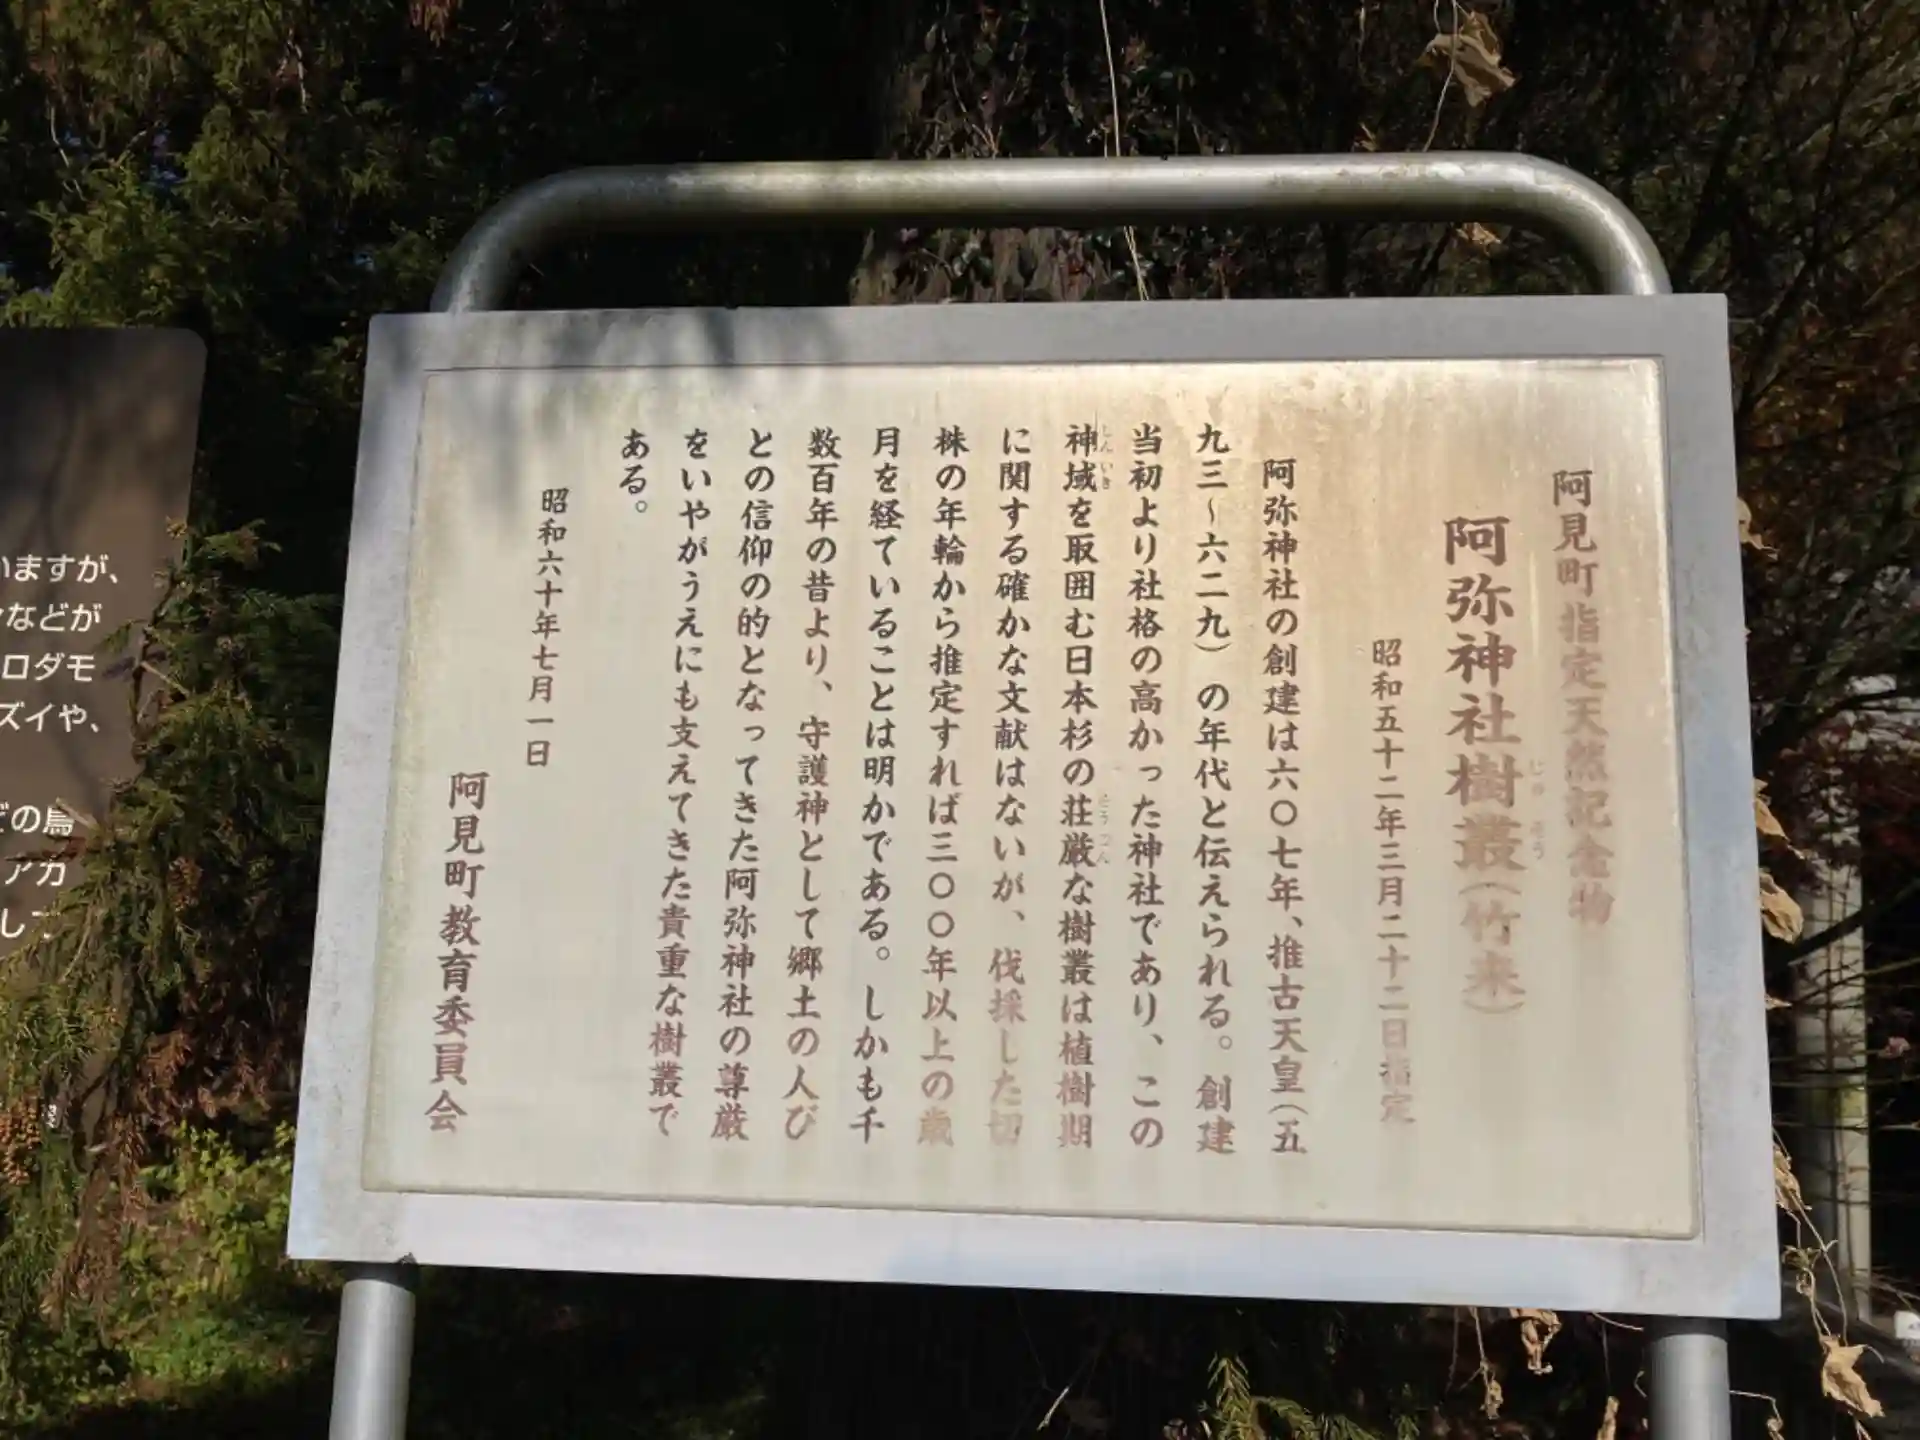 阿見町指定天然記念物
阿弥神社樹叢（竹来）
じゅ そう
昭和五十二年三月二十二日指定
阿弥神社の創建は六〇七年、推古天皇（五
九三〜六二九）の年代と伝えられる。創建
当初より社格の高かった神社であり、この
神域を取囲む日本杉の荘厳な樹叢は植樹期
しん いき
そうごん
に関する確かな文献はないが、伐採した切
株の年輪から推定すれば三〇〇年以上の歳
月を経ていることは明かである。しかも千
数百年の昔より、守護神として郷土の人び
との信仰の的となってきた阿弥神社の尊厳
をいやがうえにも支えてきた貴重な樹叢で
ある。
昭和六十年七月一日
阿見町教育委員会
いますが、
などが
ロダモ
ズイや、
どの鳥
アカ
して